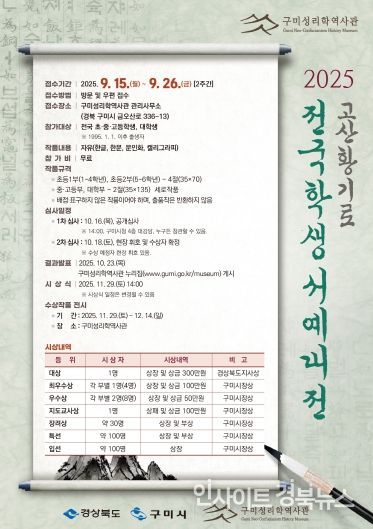 구미성리학역사관
Gumi Neo-Confucianism History Museum
2025
고산황기로
전국학생서예대전
접수기간 | 2025. 9. 15.(월) ~ 9. 26.(금) [2주간]
접수방법 | 방문 및 우편 접수
접수장소 | 구미성리학역사관 관리사무소
(경북 구미시 금오산로 336-13)
참가대상 | 전국 초·중·고등학생, 대학생
※ 1995. 1. 1. 이후 출생자
작품내용 | 자유(한글, 한문, 문인화, 캘리그라피)
참 가 비 | 무료
작품규격
◦ 초등1부(1~4학년), 초등2부(5~6학년) - 4절(35×70)
◦ 중·고등부, 대학부 - 2절(35×135) 세로작품
◦ 배접·표구하지 않은 작품이어야 하며, 출품작은 반환하지 않음
심사일정
◦ 1차 심사 : 10. 16.(목), 공개심사
※ 14:00, 구미시청 4층 대강당, 누구든 참관할 수 있음.
◦ 2차 심사 : 10. 18.(토), 현장 휘호 및 수상자 확정
※ 수상 예정자 현장 휘호 있음.
결과발표 | 2025. 10. 23.(목)
구미성리학역사관 누리집(www.gumi.go.kr/museum) 게시
시 상 식 | 2025. 11. 29.(토) 14:00
※ 시상식 일정은 변경될 수 있음
수상작품 전시
◦ 기 간 : 2025. 11. 29.(토) ~ 12. 14.(일)
◦ 장 소 : 구미성리학역사관
시상내역
등 위 시 상 자 시상내역 비 고
대상 1명 상장 및 상금 300만원 경상북도지사상
최우수상 각 부별 1명(4명) 상장 및 상금 100만원 구미시장상
우수상 각 부별 2명(8명) 상장 및 상금 50만원 구미시장상
지도교사상 1명 상패 및 상금 100만원 구미시장상
장려상 약 30명 상장 및 부상 구미시장상
특선 약 100명 상장 및 부상 구미시장상
입선 약 100명 상장 구미시장상
경상북도 구미시 구미성리학역사관
Gumi Neo-Confucianism History Museum
인사이트 경북뉴스